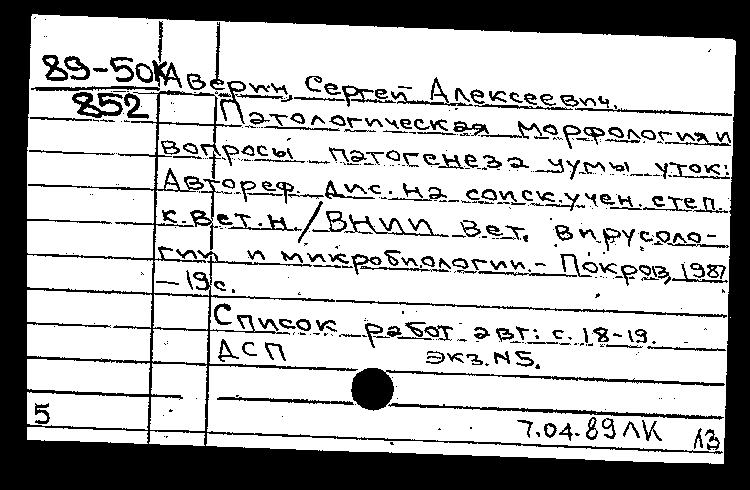 89-50К Аверин, Сергей Алексеевич.
852 Патологическая морфология и
вопросы патогенеза чумы уток:
Автореф. дис. на соиск. учен. степ.
к. вет. н. / ВНИИ вет. вирусоло-
гии и микробиологии. - Покров, 1987
- 19 с.
Список работ авт: с. 18-19.
ДСП экз. N5.
5
7.04.89 ЛК 13